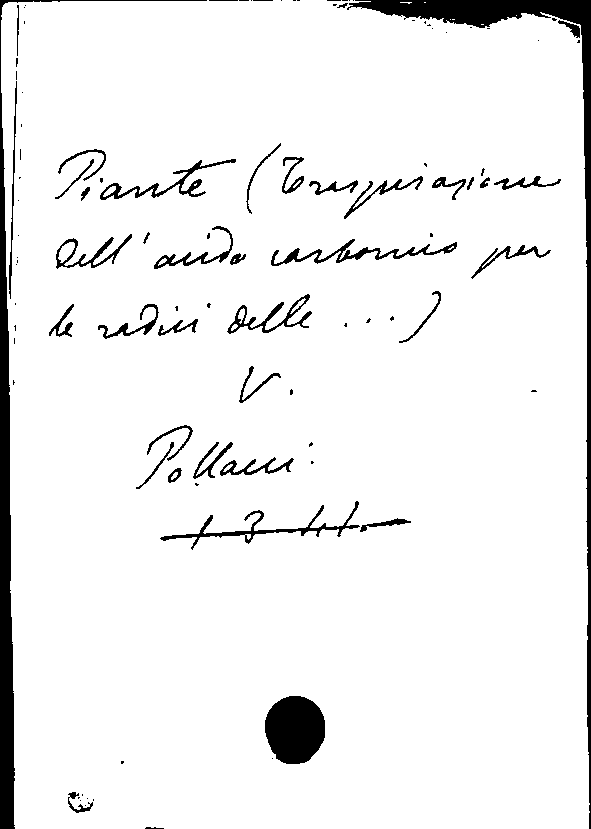 Piante (Traspirazione
dell'acido carbonico per
le radici delle ...)
V.
Pollacci.